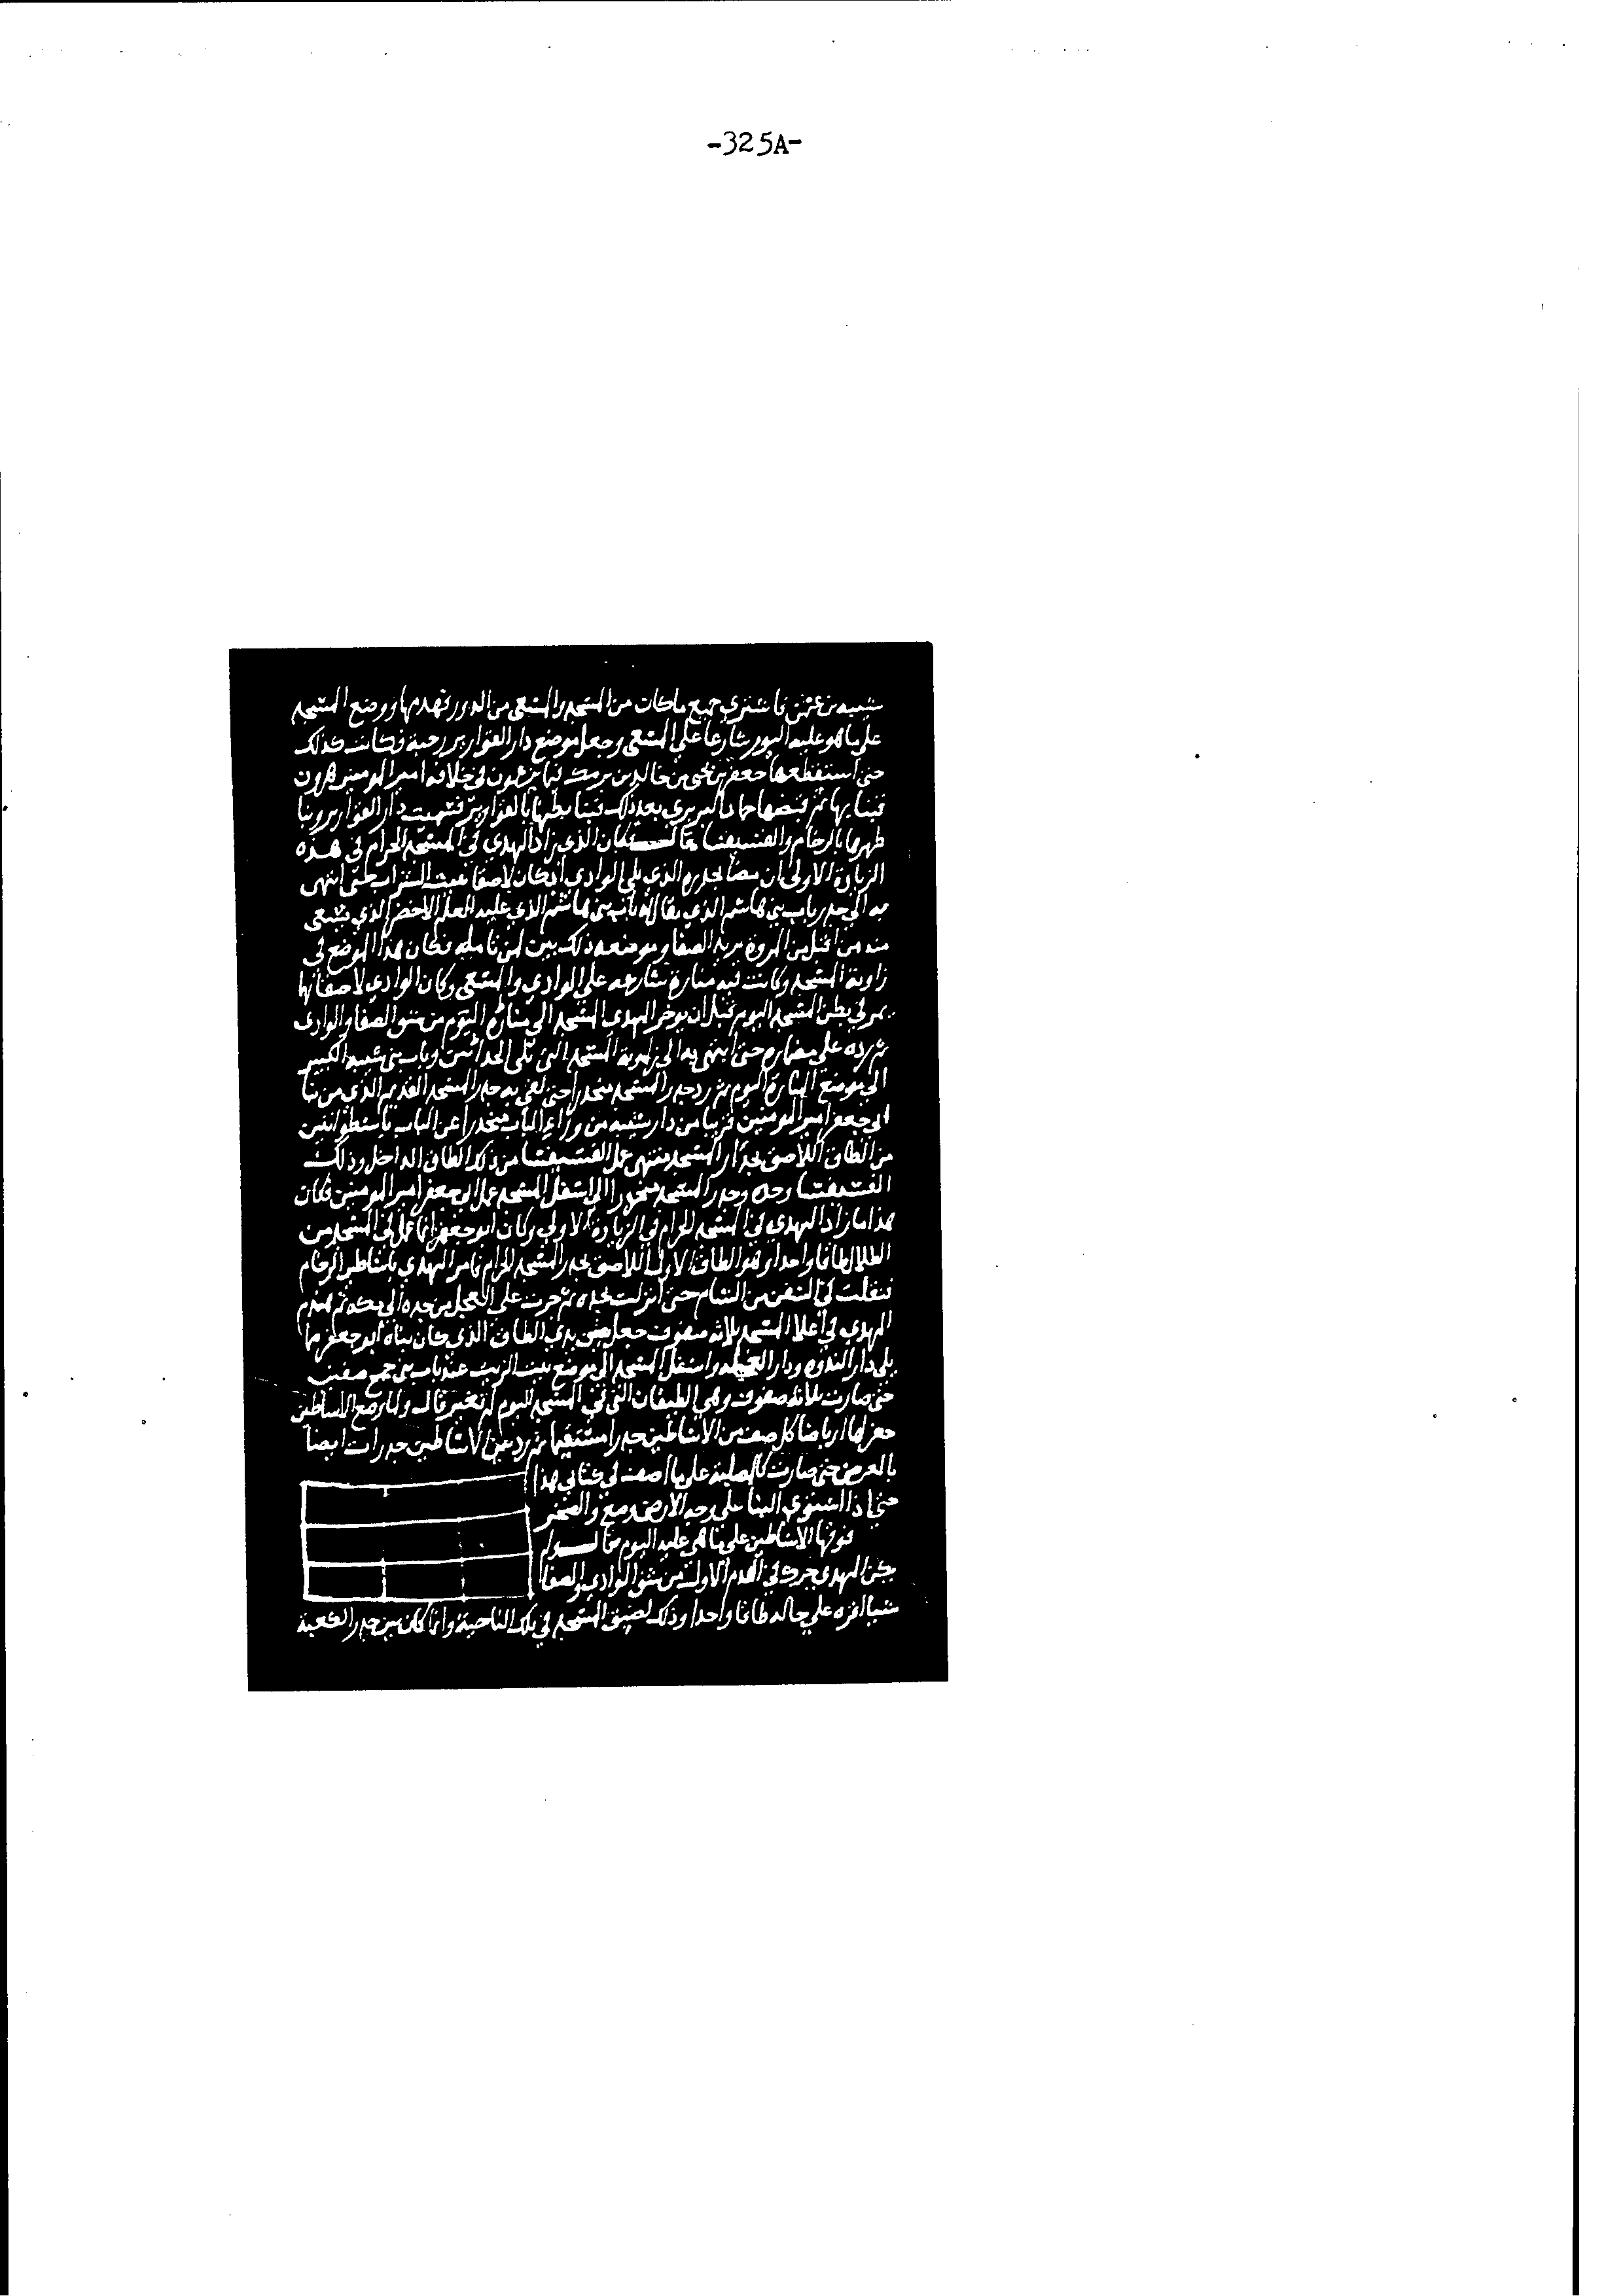 -325A-
شيبه بن عثمن فاشتري جميع ماكان من المسجد والمسعى من الدور فهدمها ووضع المسجد
على ما هو عليه اليوم شارعا على المسعى وجعل موضع دار القوارير رحبة فكانت كذلك
حتى استقطعها جعفر بن يحيى بن خالد بن برمك في خلافه امير المومنين هرون
فبناها ثم قبضها حماد البربري بعد ذلك فبنا بطنها بالقوارير فسميت دار القوارير وبنا
ظهرها بالرخام والفسيفسا قال فكان الذي زاد المهدى في المسجد الحرام في هذه
الزيادة الاولى ان مضا بجدره الذي يلي الوادى اذ كان لاصقا ببيت الشراب حتى انتهى
به الى جدر باب بني هاشم الذي يقال له باب بني هاشم الذي عليه العلم الاخضر الذي يسعى
منه من اقبل من المروة يريد الصفا وموضعه ذلك بين لمن تامله فكان هذا الموضع في
زاوية المسجد وكانت فيه منارة شارعه على الوادي والمسعى وكان الوادي لاصقا بها
يمر في بطن المسجد اليوم قبل ان يوخر المهدى المسجد الى منتهاه اليوم من شق الصفا والوادى
ثم رده على مضاره حتى انتهى به الى زاوية المسجد التي تلي الحذائين وباب بني شيبه الكبير
الى موضع المنارة اليوم ثم رد جدر المسجد منحدرا حتى لقي به جدر المسجد القديم الذي من بنا
ابي جعفر امير المومنين قريبا من دار شيبه من ورآء الباب منحدرا عن الباب باسطوانتين
من الطاق اللاصق بجدار المسجد منتهى عمل الفسيفسا من ذلك الطاق الداخل وذلك
الفسيفسا وحده وجدر المسجد منحدرا الى اسفل المسجد عمل ابي جعفر امير المومنين فكان
هذا ما زاد المهدى في المسجد الحرام في الزيادة الاولى وكان ابو جعفر انما عمل في المسجد من
الظلال طاقا واحدا وهو الطاق الاول اللاصق بجدر المسجد الحرام فامر المهدي باساطين الرخام
فنقلت في السفن من الشام حتى انزلت بجده ثم جرت على العجل من جده الى مكه ثم هندم
المهدى في اعلا المسجد ثلاثه صفوف جعل بين يدي الطاق الذي كان بناه ابو جعفر مما
يلي دار الندوه ودار العجله واسفل المسجد الى موضع بيت الزيت عند باب بني جمح صفين
حتى صارت ثلاثه صفوف وهي الطيقان التي في المسجد اليوم لم تغير قال ولما وضع الاساطين
حفر لها ارباضا كل صف من الاساطين جدرا مستقيما ثم رد بين الاساطين جدرات ايضا
بالعرض حتى صارت كالصليبه على ما اصف في كتابي هذا
حتى اذا استوى البنا على وجه الارض وضع
فوقها الاساطين على ما هي عليه اليوم قال ولم
يكن المهدى حرك في الهدم الاول من شق الوادي والصفا
شيا اقره على حاله طاقا واحدا وذلك لضيق المسجد في تلك الناحية وانما كان بين جدر الكعبة